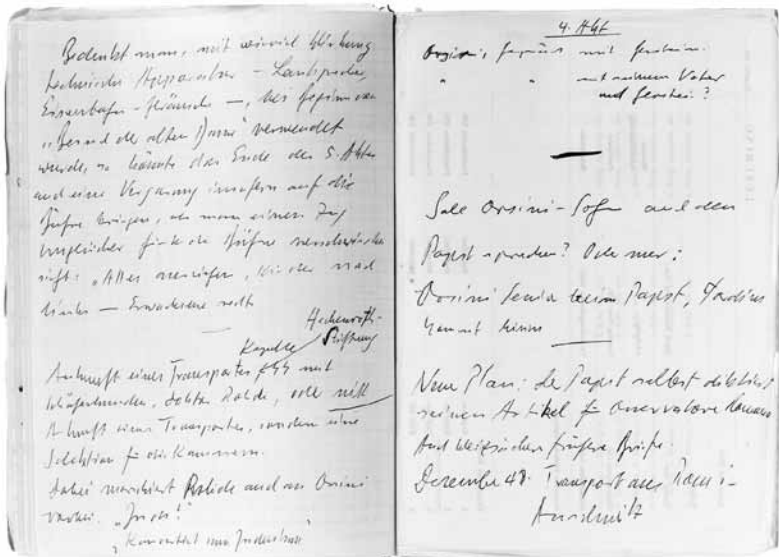 Bedenkt man, mit wieviel Wirkung
technische Apparatur – Lautsprecher,
Eisenbahn-Geräusche –, bei Beginn von
"Besuch der alten Dame" verwendet
wurde, so könnte das Ende des 5. Aktes
auch eine Vergasung insofern auf die
Bühne bringen, als man einen Zug
Unglücklicher die Bühne
sieht: "Alles ausziehen, Kinder nach
links – Erwachsene rechts
Stiftung
Kapelle
Ankunft eines Transportes mit
Schäferhunden, Doktor, oder nicht
Ankunft eines Transportes, sondern eine
Selektion für die Kammern.
Dabei marschiert auch an Orsini
vorbei. "Jude!"
"Konvertiert zum Judentum"
4. Akt
Orsini, Gespräch mit Gerstein.
" " mit seinem Vater
und Gerstein?
Soll Orsini-Sohn auch den
Papst sprechen? Oder nur:
Orsini Senior beim Papst,
kommt hinzu
Neuer Plan: Der Papst selbst diktiert
seinen Artikel für Osservatore Romano
Auch Weizsäckers frühere Briefe.
Dezember 43. Transport aus Rom in
Auschwitz